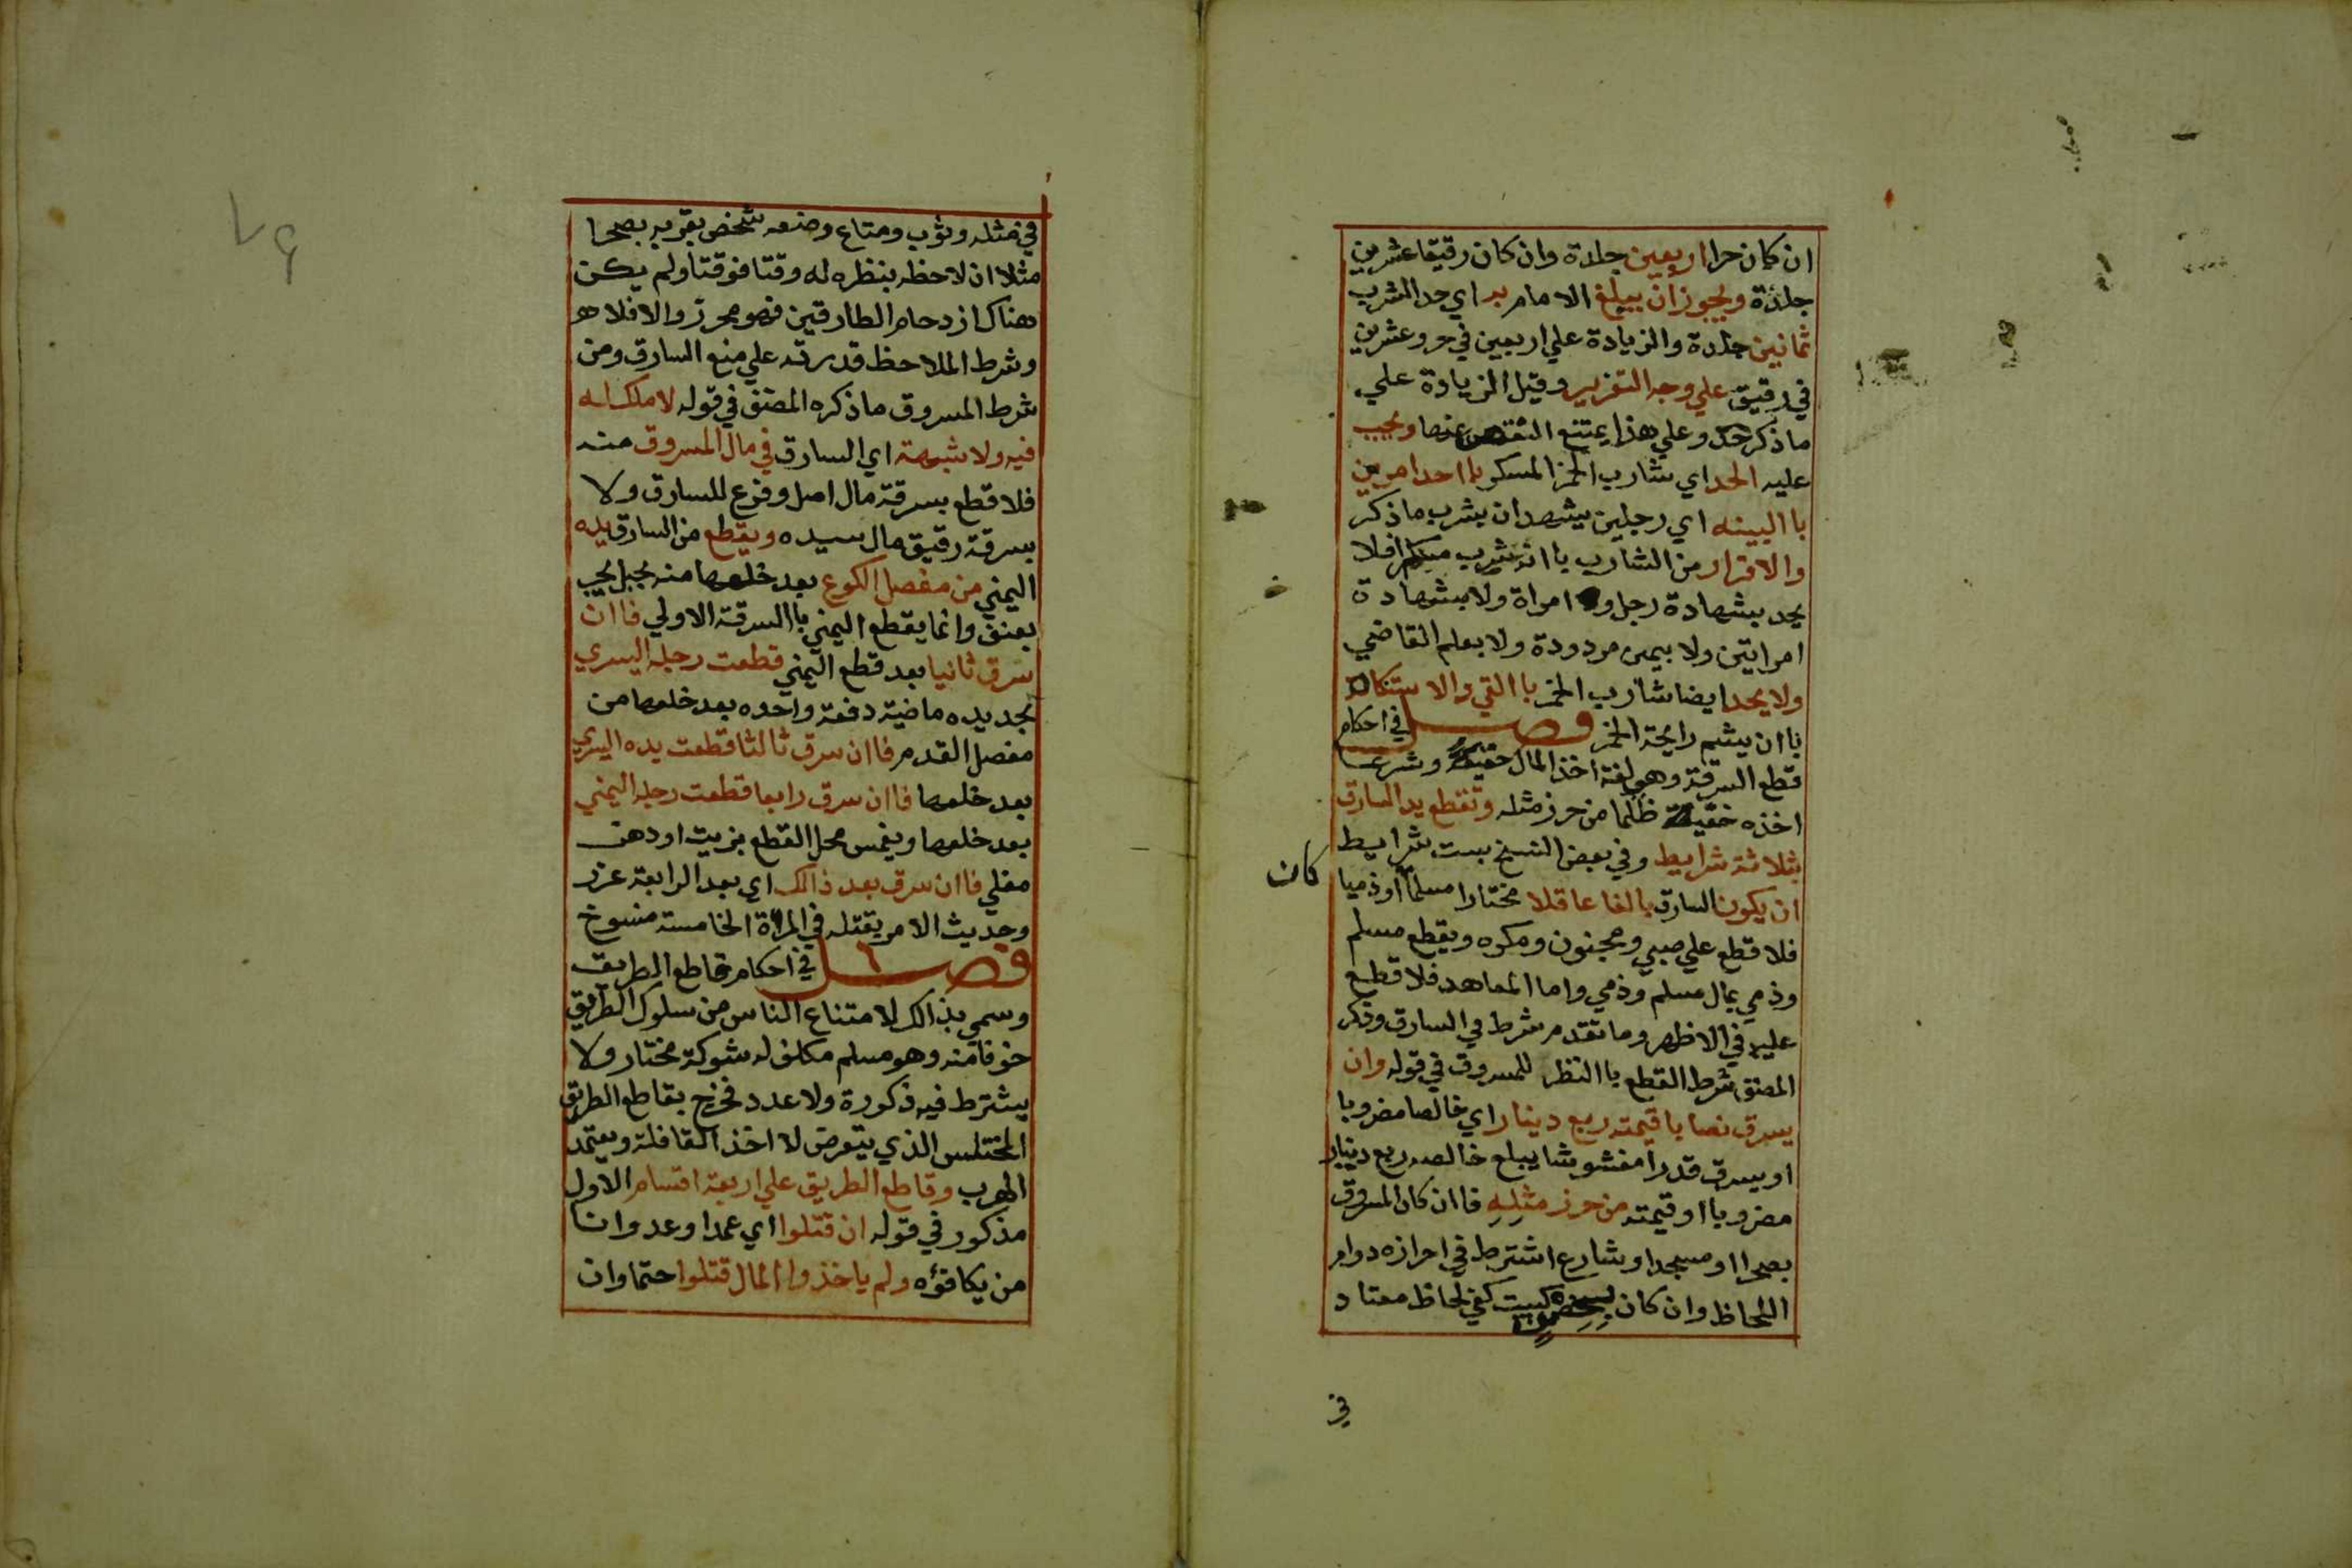 ان كان حرا اربعين جلدة وان كان رقيقا عشرين
جلدة ويجوز ان يبلغ الامام به اي حد الشرب
ثمانين جلدة والزيادة علي اربعين في حر وعشرين
في رقيق علي وجه التعزير وقيل الزيادة علي
ماذكر حد وعلي هذا يمتنع النقص عنها ويجب
عليه الحد اي شارب الخمر المسكر باحد امرين
با البينه اي رجلين يشهدان بشرب ماذكر
والاقرار من الشارب باانه شرب مسكرا فلا
يحد بشهادة رجل و امراة ولا بشهادة
امراتين ولا بيمين مردودة ولا بعلم القاضي
ولا يحد ايضا شارب الخمر باالقي والاستنكاه
باان يشم رايحة الخمر فصل في احكام
قطع السرقة وهي لغة اخذ المال خفية وشرعا
اخذه خفية ظلما من حرز مثله وتقطع يد السارق
بثلاثة شرايط وفي بعض النسخ بست شرايط
ان يكون السارق بالغا عاقلا مختارا مسلما اوذميا
كان
فلا قطع علي صبي ومجنون ومكره ويقطع مسلم
وذمي بمال مسلم وذمي واما المعاهد فلا قطع
عليه في الاظهر وما تقدم شرط في السارق وذكر
المصنف شرط القطع باالنظر للمسروق في قوله وان
يسرق نصابا قيمته ربع دينار اي خالصا مضروبا
او يسرق قدرا مغشوشا يبلع خالصه ربع دينار
مضروبا اوقيمته من حرز مثله فاان كان المسروق
بصحرا او مسجد او شارع اشترط في احرازه دوام
اللحاظ وان كان بحصن كبيت كفي لحاظ معتاد
في
في مثله وثوب ومتاع وضعه شخص بقربه بصحرا
مثلا ان لاحظه بنظره له وقتا فوقتا ولم يكن
هناك ازدحام الطارقين فهو محرز والا فلا
وشرط الملاحظ قدرته علي منع السارق ومن
شرط المسروق ماذكره المصنف في قوله لا ملك له
فيه ولا شبهة اي السارق في مال المسروق منه
فلا قطع بسرقة مال اصل وفرع للسارق ولا
بسرقة رقيق مال سيده ويقطع من السارق يده
اليمني من مفصل الكوع بعد خلعها منه بحبل يجر
بعنف وانما يقطع اليمني باالسرقة الاولي فاان
سرق ثانيا بعد قطع اليمني قطعت رجله اليسري
بحديده ماضية دفعة واحده بعد خلعها من
مفصل القدم فاان سرق ثالثا قطعت يده اليسري
بعد خلعها فاان سرق رابعا قطعت رجله اليمني
بعد خلعها ويغمس محل القطع بزيت اودهن
مغلي فاان سرق بعد ذالك اي بعد الرابعة عزر
وحديث الامر بقتله في المرة الخامسة منسوخ
فصل في احكام قاطع الطريق
وسمي بذالك لامتناع الناس من سلوك الطريق
خوفا منه وهو مسلم مكلف له شوكة مختار ولا
يشترط فيه ذكورة ولا عدد فخرج بقاطع الطريق
المختلس الذي يتعرض لا اخذ القافلة ويعتمد
الهرب وقاطع الطريق علي اربعة اقسام الاول
مذكور في قوله ان قتلوا اي عمدا وعدوانا
من يكافؤه ولم ياخذوا المال قتلوا حتما وان